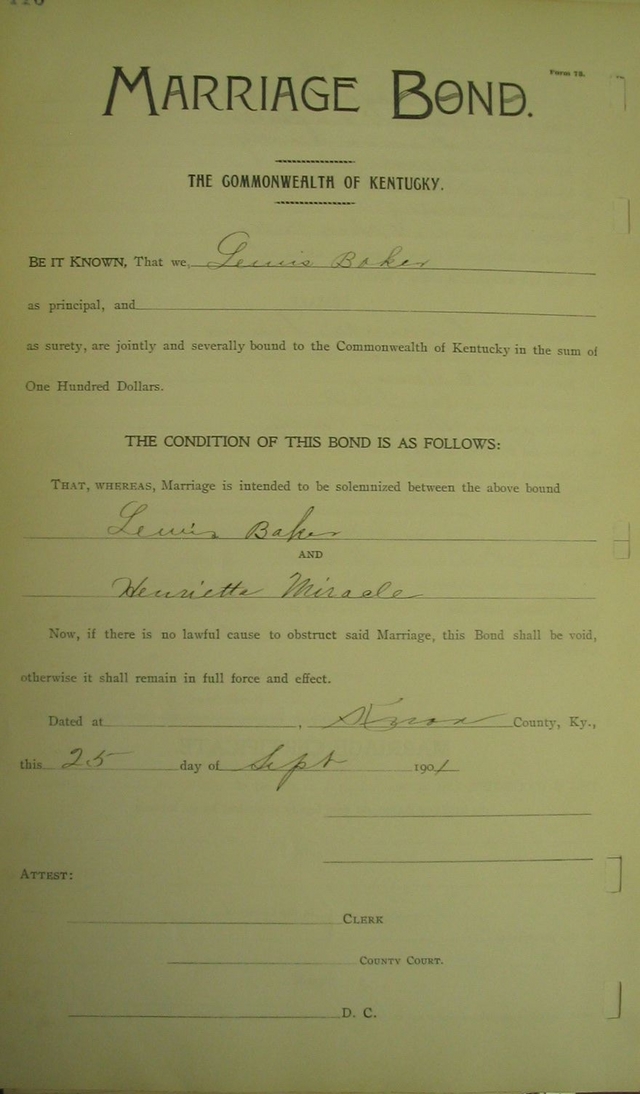 MARRIAGE BOND.
Form 78.
THE COMMONWEALTH OF KENTUCKY.
BE IT KNOWN, That we, Lewis Baker
as principal, and
as surety, are jointly and severally bound to the Commonwealth of Kentucky in the sum of
One Hundred Dollars.
THE CONDITION OF THIS BOND IS AS FOLLOWS:
THAT, WHEREAS, Marriage is intended to be solemnized between the above bound
Lewis Baker
AND
Henrietta Miracle
Now, if there is no lawful cause to obstruct said Marriage, this Bond shall be void,
otherwise it shall remain in full force and effect.
Dated at , Knox County, Ky.,
this 25 day of Sept 1901
ATTEST:
CLERK
COUNTY COURT.
D. C.